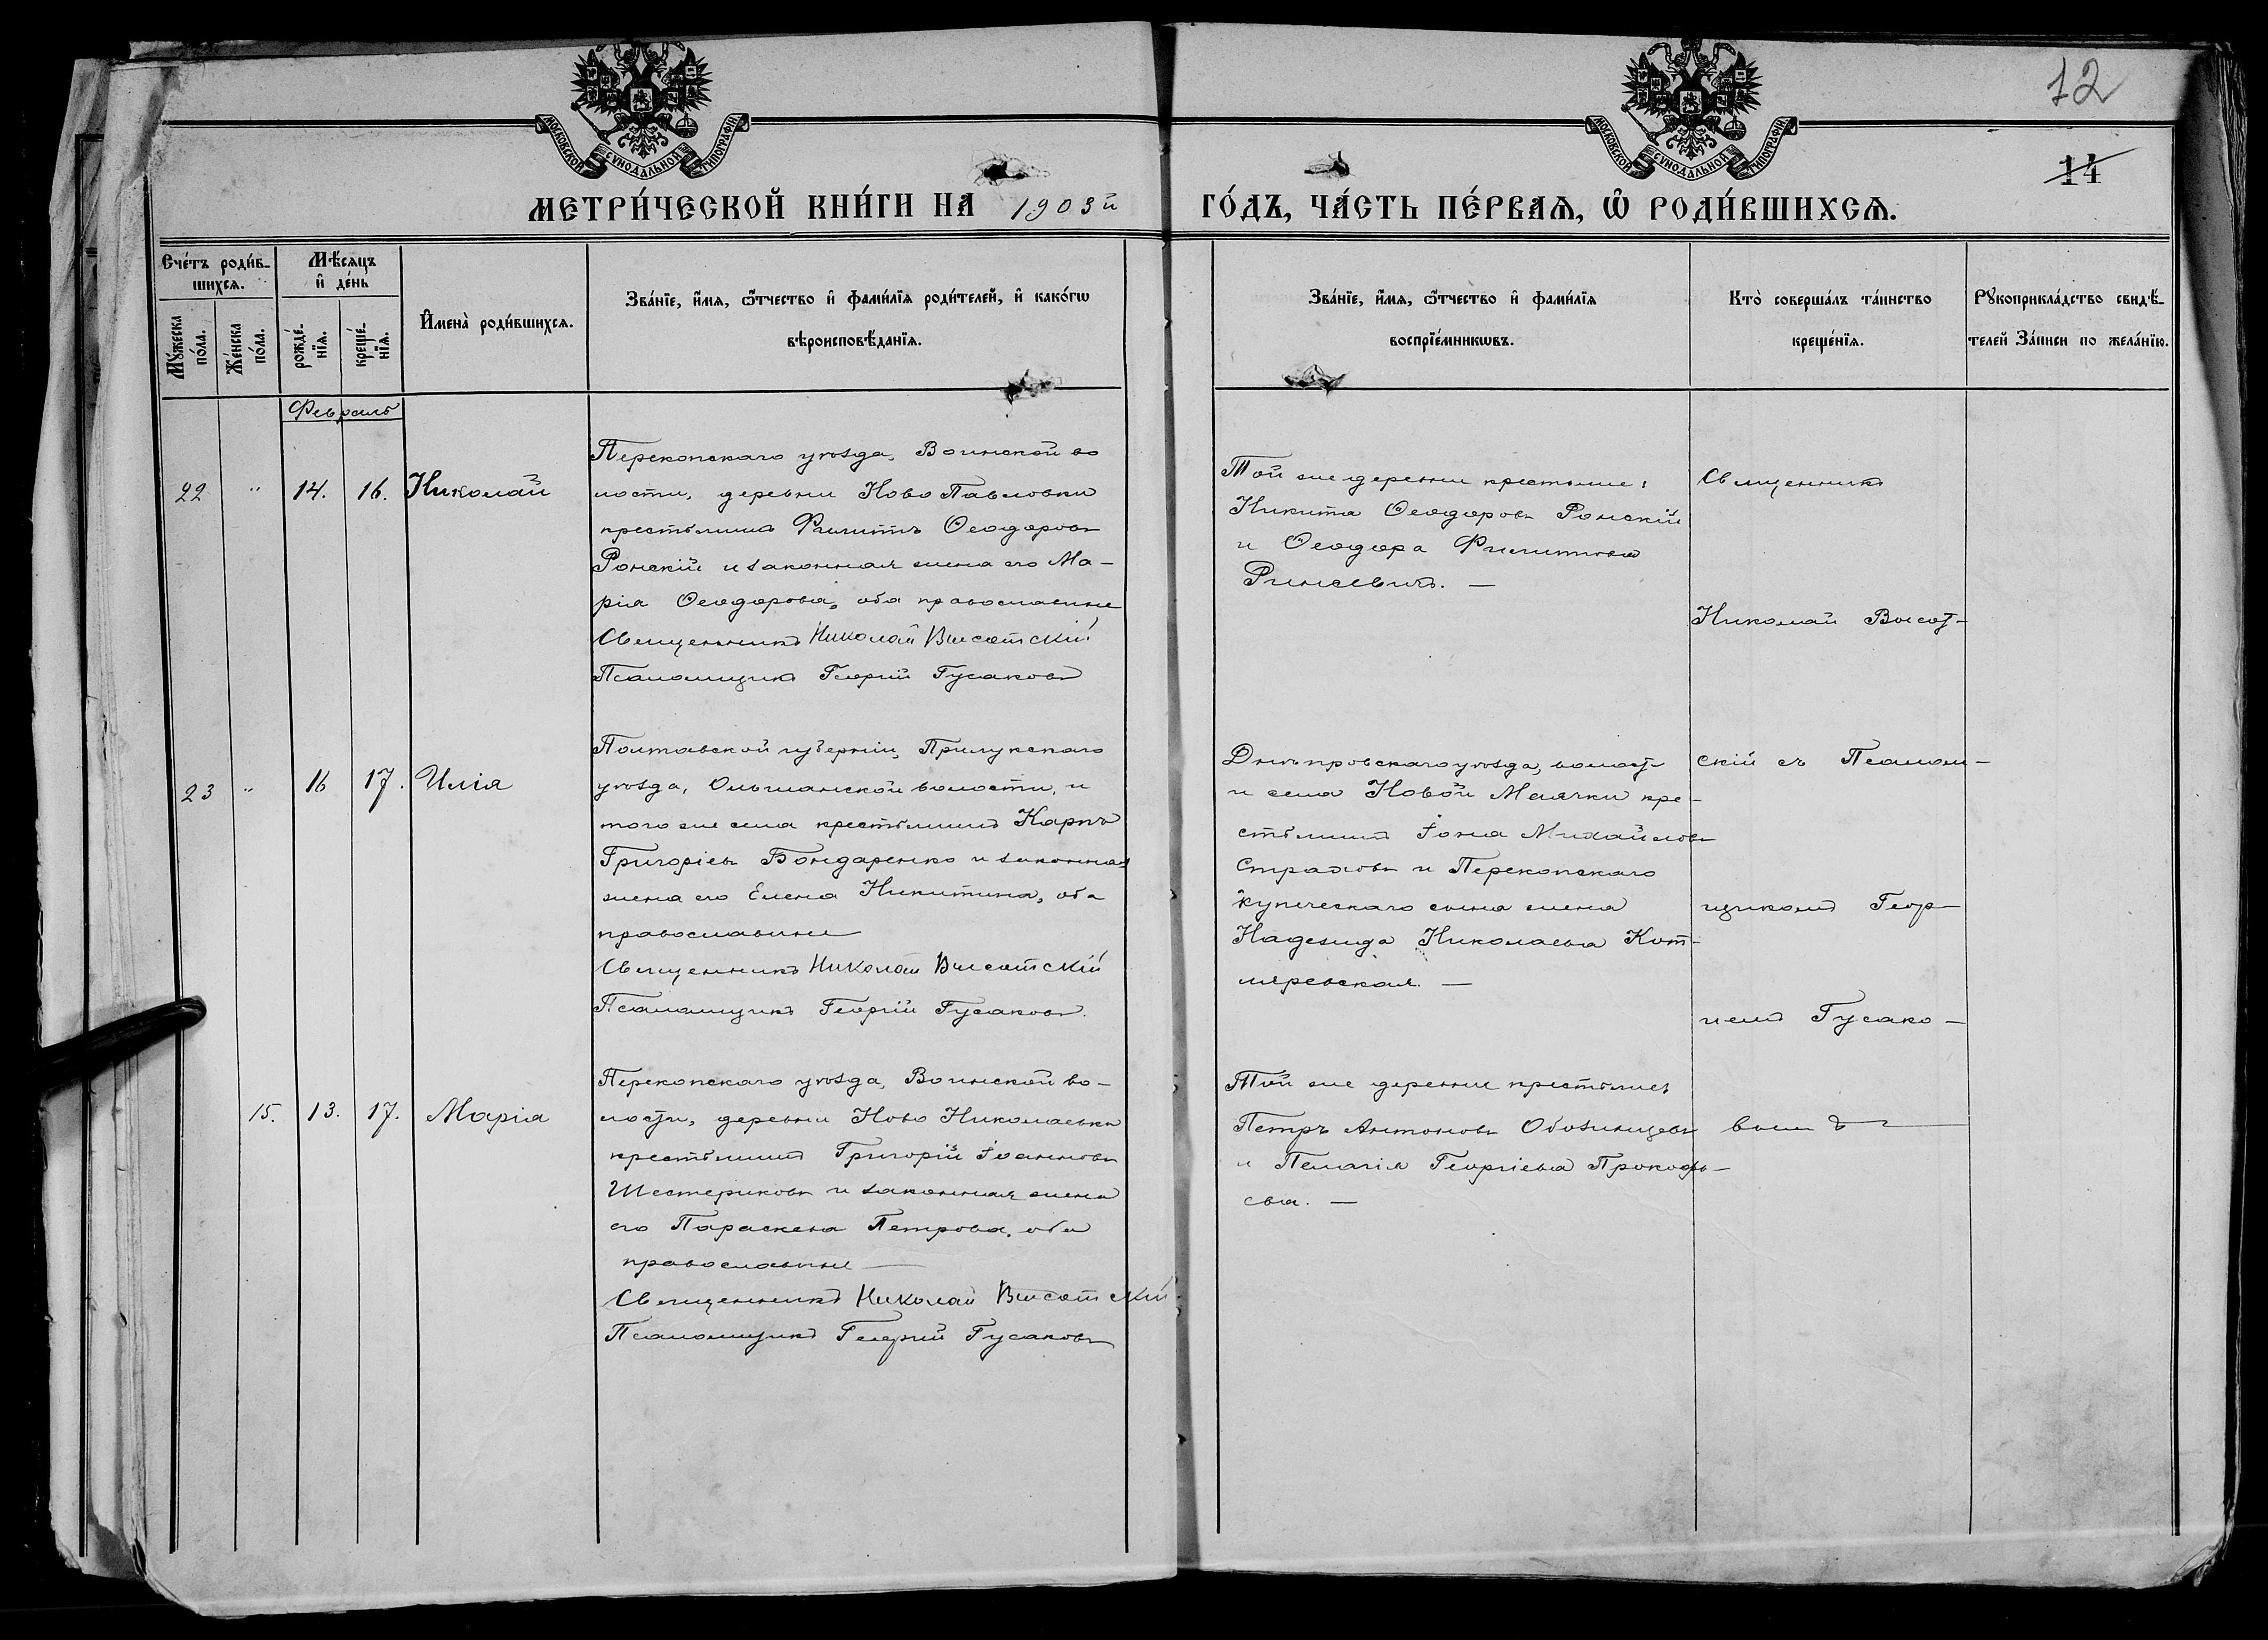 12
14
МОСКОВСКОЙ СѴНОДАЛЬНОЙ ТИПОГРАФІИ
МОСКОВСКОЙ СѴНОДАЛЬНОЙ ТИПОГРАФІИ
МЕТРИ́ЧЕСКОЙ КНИ́ГИ НА 1903й ГО́ДЪ, ЧА́СТЬ ПЕ́РВАѦ, Ѽ РОДИ́ВШИХСѦ.
Счéтъ роди́в-
шихсѧ.
Мꙋ́жеска
по́ла.
Же́нска
по́ла.
Мѣ́сѧцъ
и҆ де́нь
рожде́-
нїѧ.
креще́-
нїѧ.
И҆мена̀ роди́вшихсѧ.
Зва́нїе, и҆́мѧ, ѻ҆́тчество и҆ фами́лїѧ роди́телей, и҆ како́гѡ
вѣроисповѣ́данїѧ.
Зва́нїе, и҆́мѧ, ѻ҆́тчество и҆ фами́лїѧ
воспрїе́мникѡвъ.
Кто̀ соверша́лъ та́инство
креще́нїѧ.
Рꙋкоприкла́дство свидѣ́-
телей За́писи по жела́нїю.
Февраль
22 " 14. 16. Николай
Перекопскаго уѣзда, Воинской во
лости, деревни Ново Павловки
крестьянинъ Филиппъ Ѳеодоровъ
Ронскій и законная жена его Ма-
рія Ѳеодорова, оба православные
Священникъ Николай Высотскій
Псаломщикъ Георгій Гусаковъ
Той же деревни крестьяне:
Никита Ѳеодоровъ Ронскій
и Ѳеодора Филиппова
Ринсевичъ. —
Священникъ
Николай Высот-
23 " 16 17. Илія
Полтавской губерніи, Прилукскаго
уѣзда, Ольшанской волости, и
того же села крестьянинъ Карпъ
Григоріевъ Бондаренко и законная
жена его Елена Никитина, оба
православные
Священникъ Николай Высотскій
Псаломщикъ Георгій Гусаковъ.
Днѣпровскаго уѣзда, волост
и села Новой Маячки кре-
стьянинъ Іона Михайловъ
Страховъ и Перекопскаго
купеческаго сына жена
Надежда Николаевна Кот-
ляревская. —
скій съ Псалом-
щикомъ Геор-
гіемъ Гусако-
15. 13. 17. Марія
Перекопскаго уѣзда, Воинской во-
лости, деревни Ново Николаевки
крестьянинъ Григорій Іоанновъ
Шестериковъ и законная жена
его Параскева Петрова, оба
православные —
Священникъ Николай Высотскій
Псаломщикъ Георгій Гусаковъ
Той же деревни крестьяне:
Петръ Антоновъ Обозинцевъ
и Пелагія Георгіева Прокофь-
ева. —
вымъ —